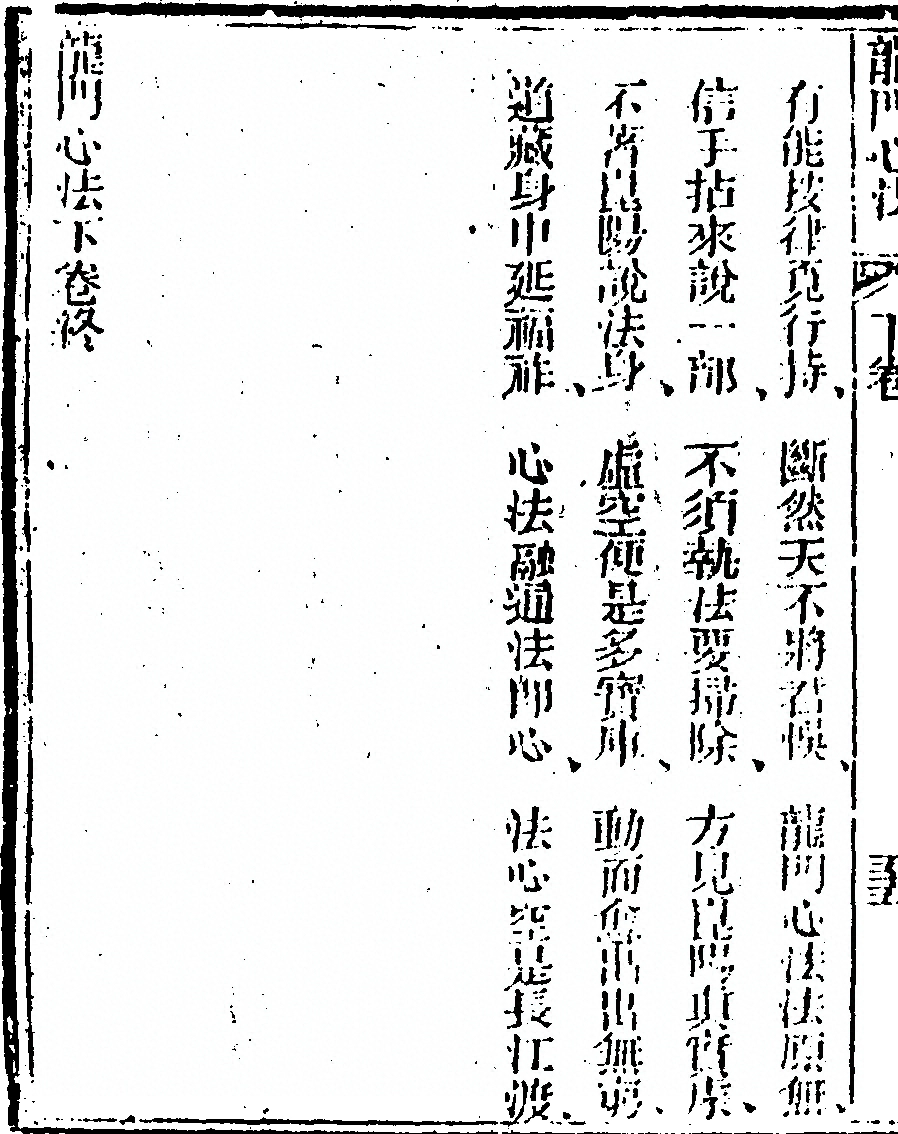 龍門心法 下卷
有能按律竟行持、斷然天不將君悞、龍門心法法原無、
信手拈來說一部、不須執法要掃除、方見崑陽真寶庫、
不著崑陽說法身、虛空便是多寶庫、動而愈出出無窮、
道藏身中延福祚、心法融通法即心、法心空是長江渡、
龍門心法下卷終